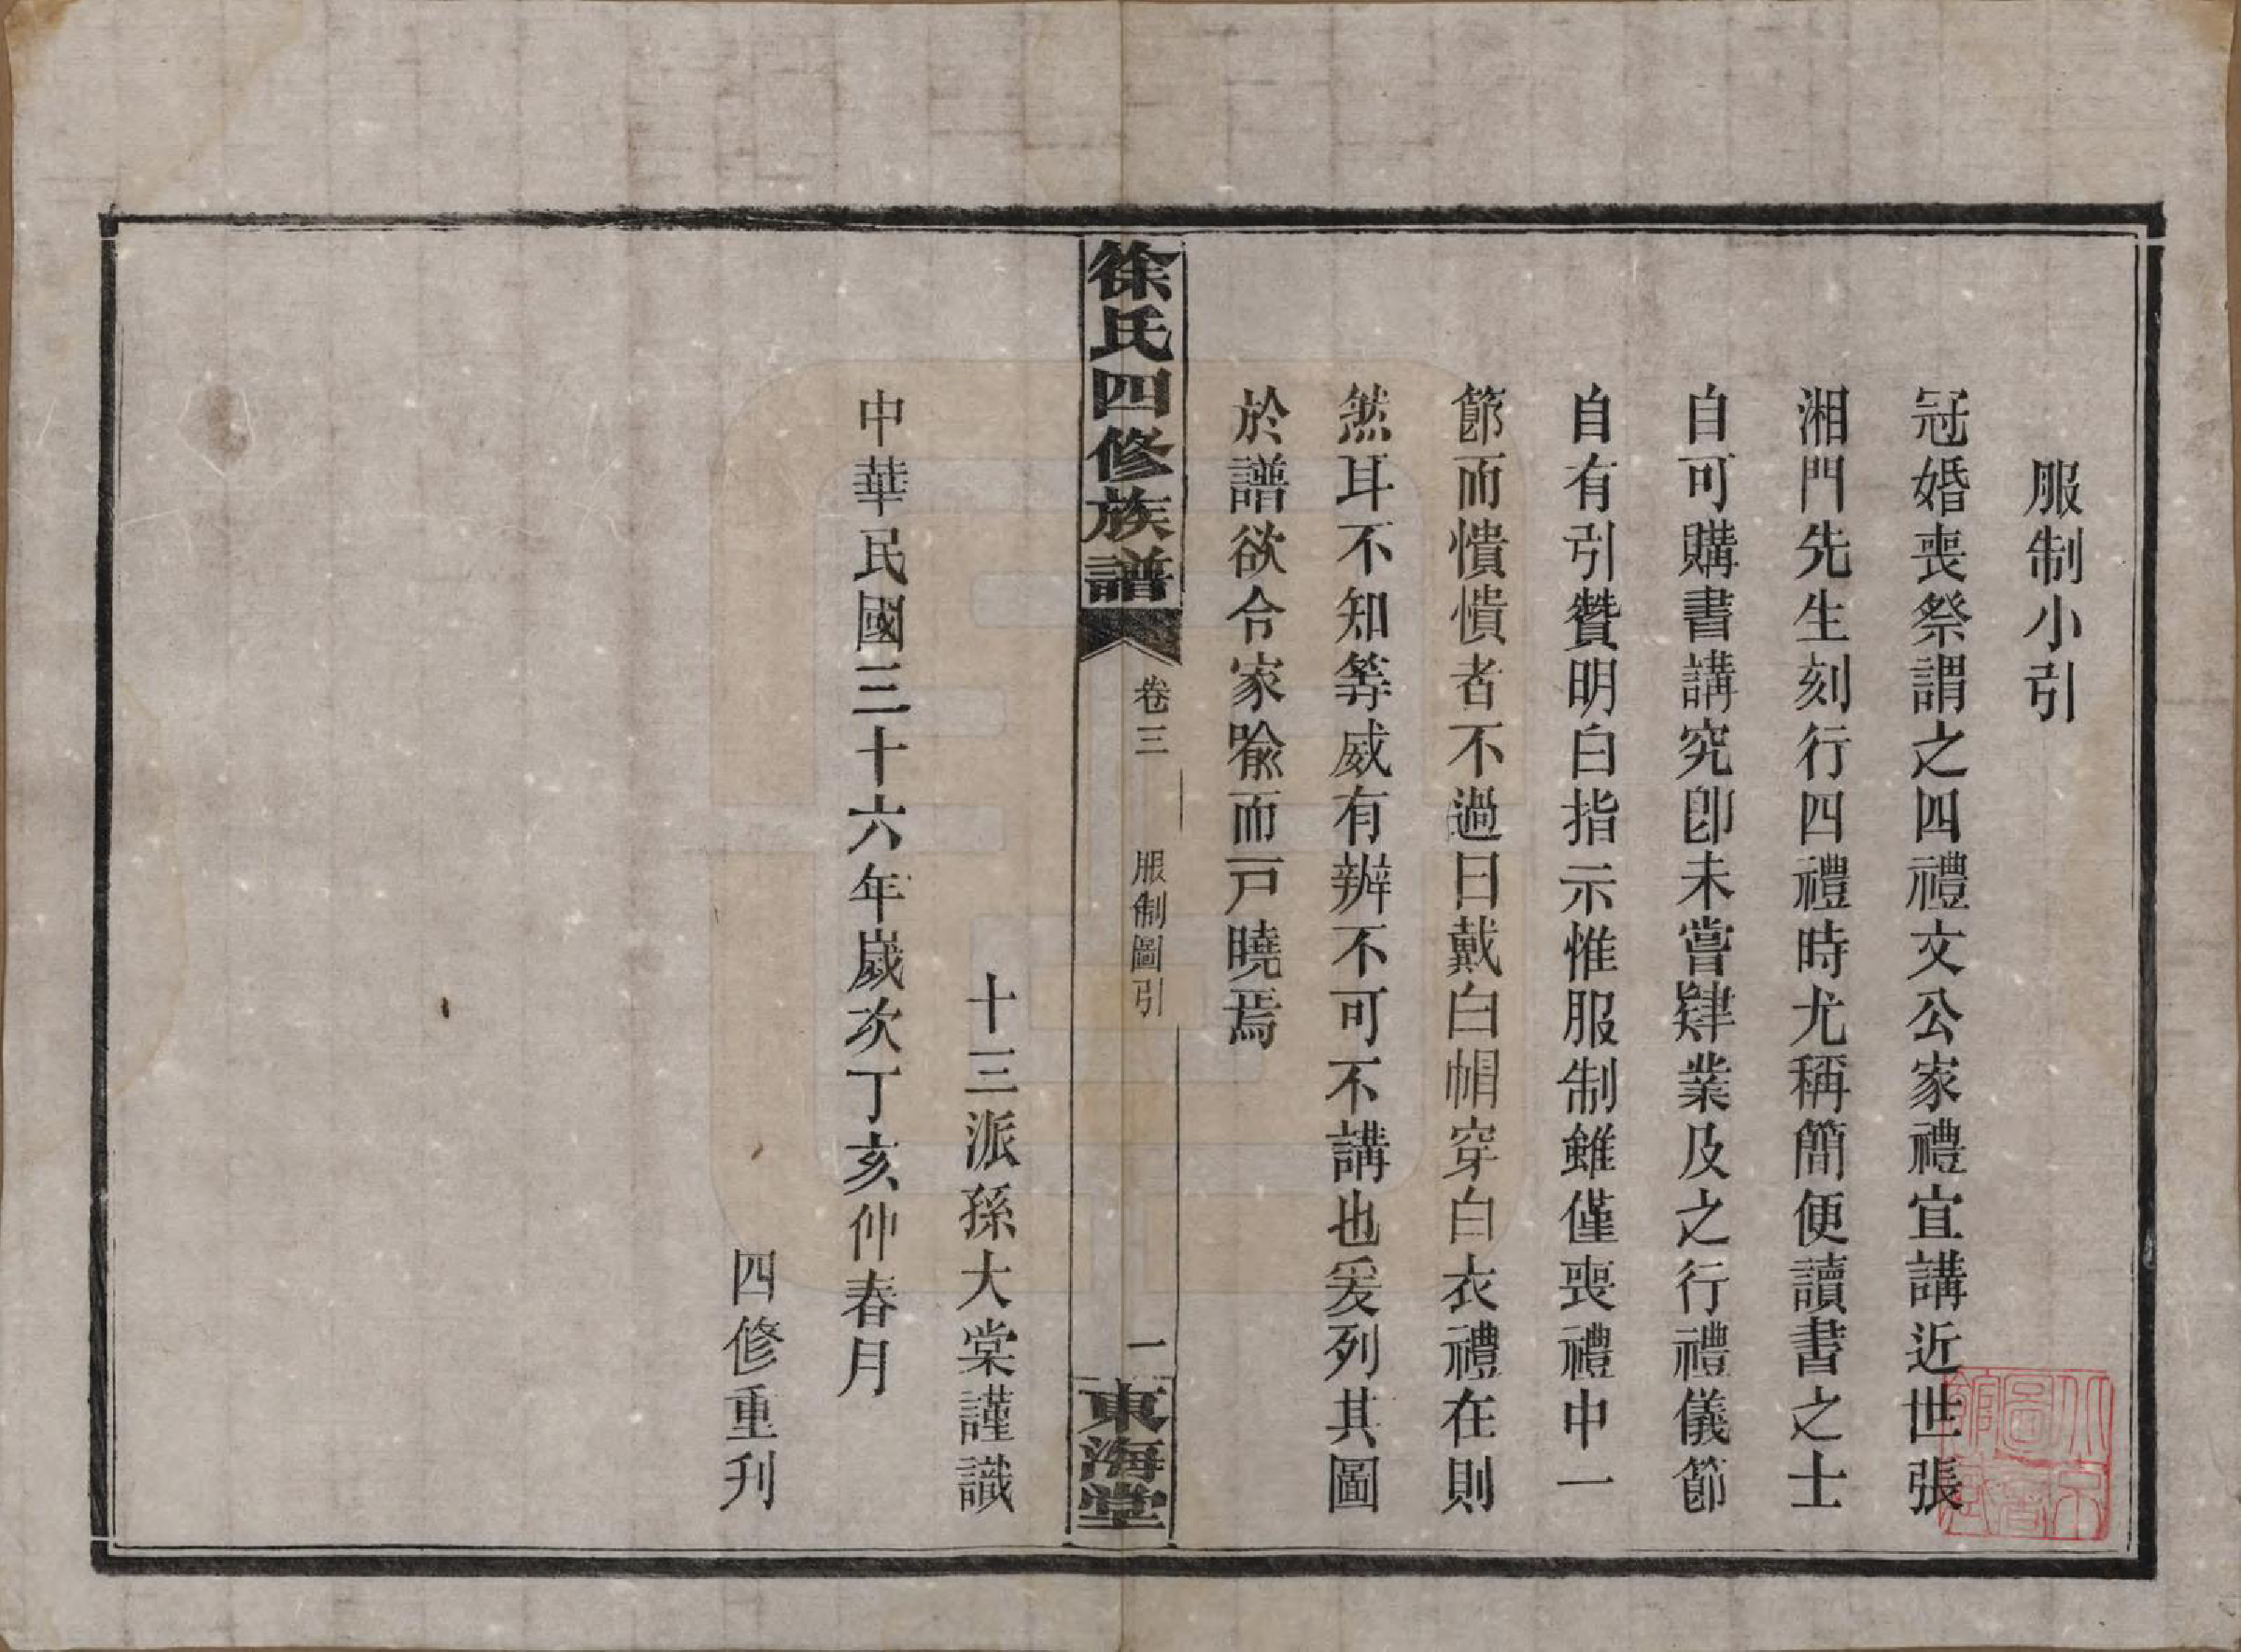 服制小引
冠婚喪祭謂之四禮文公家禮宜講近世張
湘門先生刻行四禮時尤稱簡便讀書之士
自可購書講究卽未嘗肄業及之行禮儀節
自有引贊明白指示惟服制雖僅喪禮中一
節而憒憒者不過曰戴白帽穿白衣禮在則
然耳不知等威有辨不可不講也爰列其圖
於譜欲令家喻而戸曉焉
徐氏四修族譜
卷三
服制圖引
一
東海堂
十三派孫大棠謹識
中華民國三十六年歲次丁亥仲春月
四修重刋
北京圖書館藏